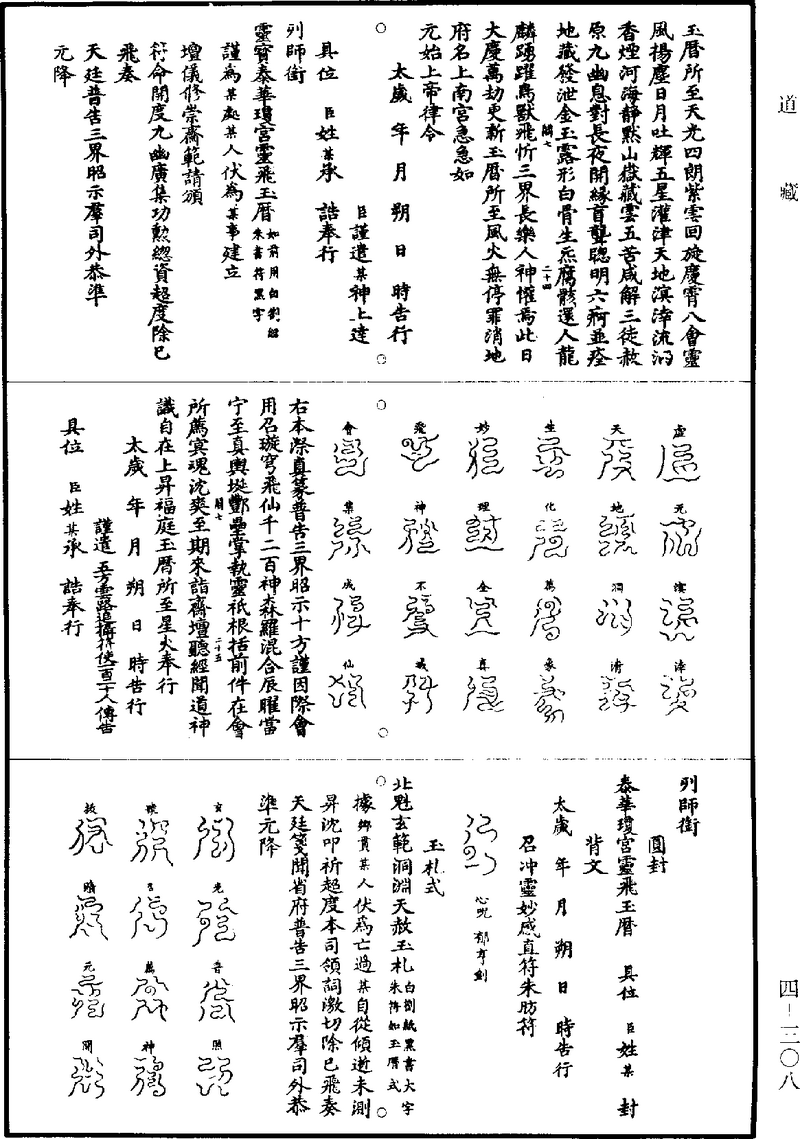 道藏
玉曆所至天光四朗紫雲回旋慶霄八會靈
風揚塵日月吐輝五星灌津天地溟涬流汭
香煙河海靜默山嶽藏雲五苦咸解三徒赦
原九幽息對長夜開緣盲聾聰明六痾並痊
地藏發泄金玉露形白骨生炁腐骸還人龍
關七 二十四
麟踴躍鳥獸飛忻三界長樂人神懽焉此日
大慶萬劫更新玉曆所至風火無停罪消地
府名上南宮急急如
元始上帝律令
太歲 年 月 朔 日 時告行
臣謹遣某神上達
具位 臣姓某承 誥奉行
列師銜
靈寶泰華瓊宮靈飛玉曆如前用白劄紹朱書符黑字
謹為某處某人伏為某事建立
壇儀修崇齋範請頒
符命開度九幽廣集功勲總資超度除已
飛奏
天廷普告三界昭示羣司外恭準
元降
虛 无 溟 涬
天 地 洞 清
生 化 萬 象
妙 理 全 真
愛 神 不 滅
會 集 成 仙
右本際真篆普告三界昭示十方謹因際會
用召璇穹飛仙千二百神森羅混合辰曜當
宁至真輿埏酆壘掌執靈祇根括前件在會
關七 二十五
所薦冥魂沈爽至期來詣齋壇聽經聞道神
識自在上昇福庭玉曆所至星火奉行
太歲 年 月 朔 日 時告行
謹遣五方雲路追攝符使一百二十人傳告
具位 臣姓某承 誥奉行
列師銜
圓封
泰華瓊宮靈飛玉曆 具位 臣姓某 封
背文
太歲 年 月 朔 日 時告行
召沖靈妙感直符朱肪符
心呪 郁亨劍
玉札式
北魁玄範洞淵天赦玉札白劄紙黑書大字朱符如玉曆式
據鄉貫某人伏為亡過某自從傾逝未測
昇沈叩祈超度本司領詞激切除已飛奏
天廷箋聞省府普告三界昭示羣司外恭
準元降
玄 光 普 照
瓊 召 萬 神
赦 曠 元 開
四-三〇八